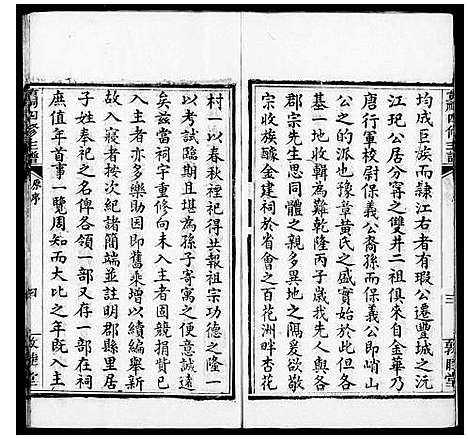 均成巨族而隷江右者有瑕公遷豐城之沅
江玘公居分寧之雙井二祖俱來自金華乃
唐行軍校尉保義公裔孫而保義公即峭山
公之的派也豫章黄氏之盛實始於此但各
基一地收輯為難乾隆丙子歲我先人與各
郡宗先生思同體之親多異地之隔爰欲敬
宗收族醵金建祠於省會之百花洲畔杏花
村一以春秋禋祀得共報祖宗功德之隆一
以考試臨期且堪為孫子寄寓之便意誠遠
矣兹當同事修向未入主者固競捐貲巳
入主者亦多樂助因即舊乘增以續編舉新
故入寢者按次紀諸簡端並明郡縣里居
子姓奉祀之名俾各領一部又存一部在祠
庶值年首事一覽周知而大比之年既入主
四修主譜
原序
三
四
敦睦堂